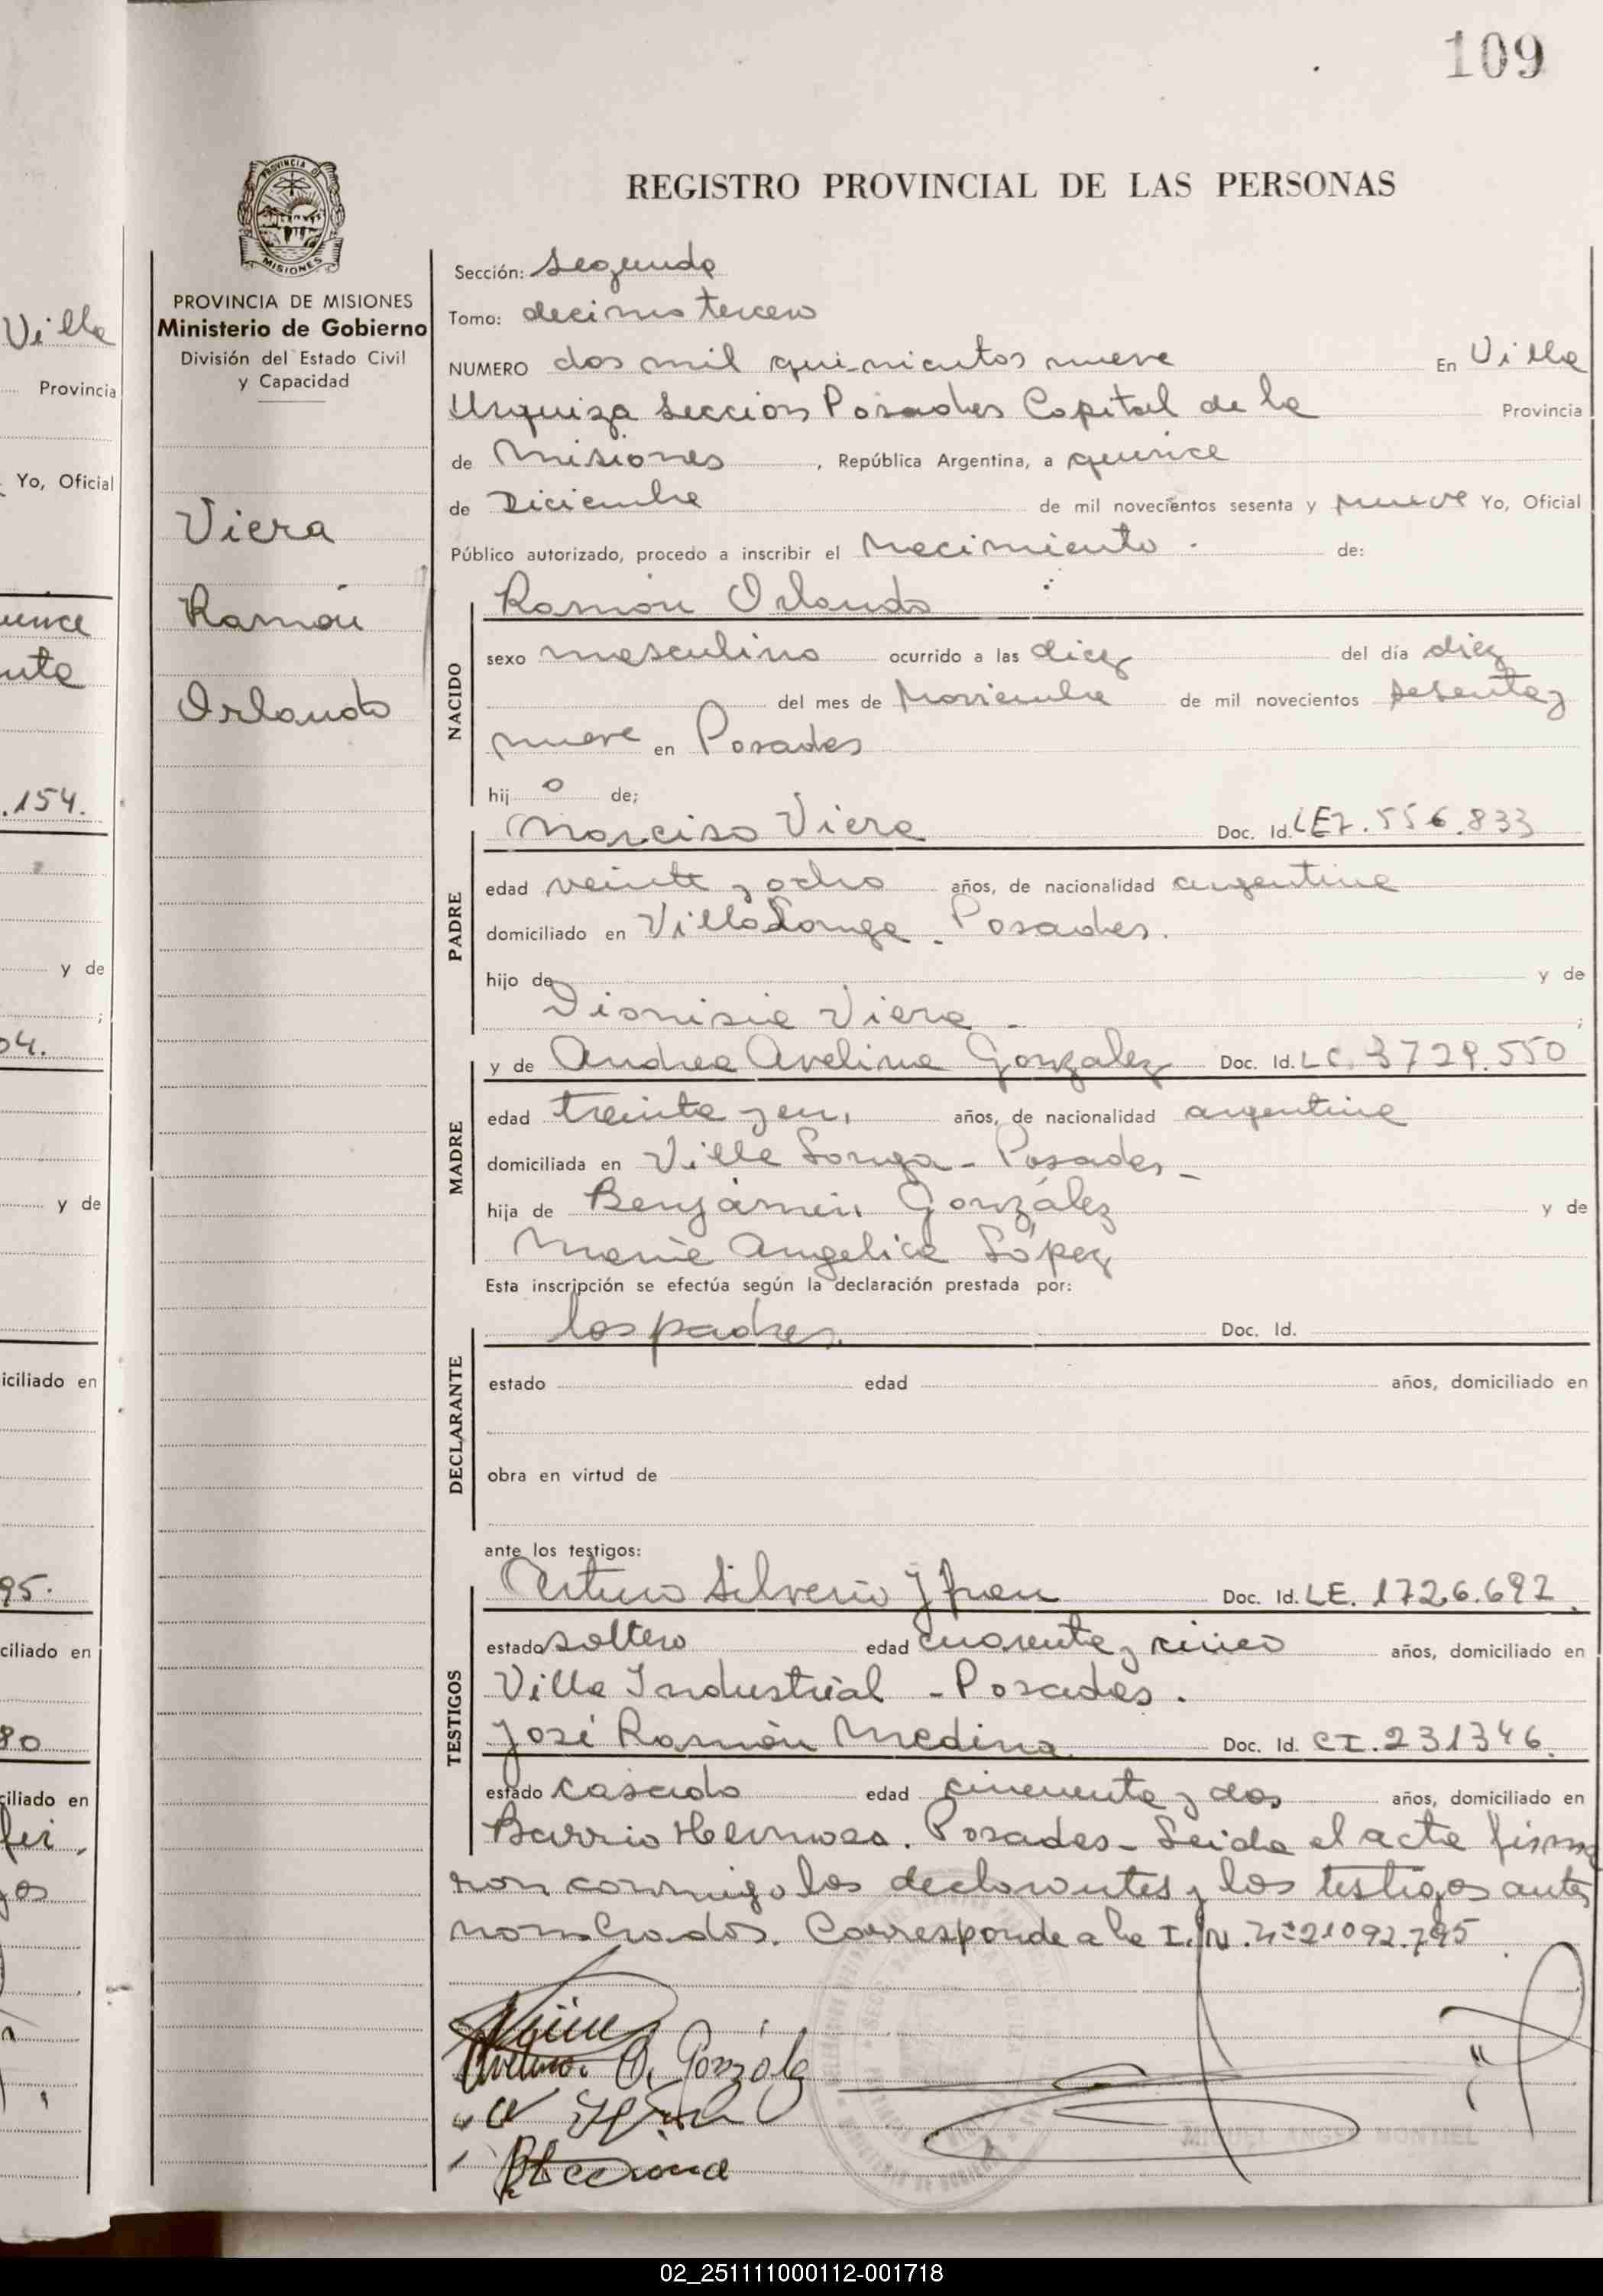 109
REGISTRO PROVINCIAL DE LAS PERSONAS
PROVINCIA
MISIONES
PROVINCIA DE MISIONES
Ministerio de Gobierno
División del Estado Civil
y Capacidad
Viera
Ramón
Orlando
Sección: Segunda
Tomo: decimo tercero
NUMERO dos mil quinientos nueve En Villa
Urquiza Sección Posadas Capital de la Provincia
de Misiones, República Argentina, a quince
de Diciembre de mil novecientos sesenta y nueve Yo, Oficial
Público autorizado, procedo a inscribir el Nacimiento. de:
NACIDO
Ramón Orlando
sexo masculino ocurrido a las diez del día diez
del mes de Noviembre de mil novecientos sesenta y
nueve en Posadas
hij o de;
PADRE
Narciso Viera Doc. Id. LE 7.556.833
edad veinte y ocho años, de nacionalidad argentina
domiciliado en Villa Longa. Posadas.
hijo de y de
Dionisia Viera - ;
MADRE
y de Andrea Avelina Gonzalez Doc. Id. LC. 3729.550
edad treinta y un, años, de nacionalidad argentina
domiciliada en Villa Longa - Posadas -
hija de Benjámin González y de
Maria Angelica López
Esta inscripción se efectúa según la declaración prestada por:
DECLARANTE
los padres. Doc. Id.
estado edad años, domiciliado en
obra en virtud de
ante los testigos:
TESTIGOS
Arturo Silverio Doc. Id. LE. 1726.692.
estado soltero edad cuarenta y cinco años, domiciliado en
Villa Industrial - Posadas.
José Ramón Medina Doc. Id. CI. 231346.
estado casado edad cincuenta y dos años, domiciliado en
Barrio Hermoso. Posadas - Leida el acta firma
ron conmigo los declarantes y los testigos antes
nombrados. Corresponde a la I.N. Nº 21092.795
A. Gonzále
MIGUEL ANGEL MONTIEL
Villa
Provincia
Yo, Oficial
.154.
y de
;
04.
y de
iciliado en
95.
ciliado en
80
ciliado en
02_251111000112-001718